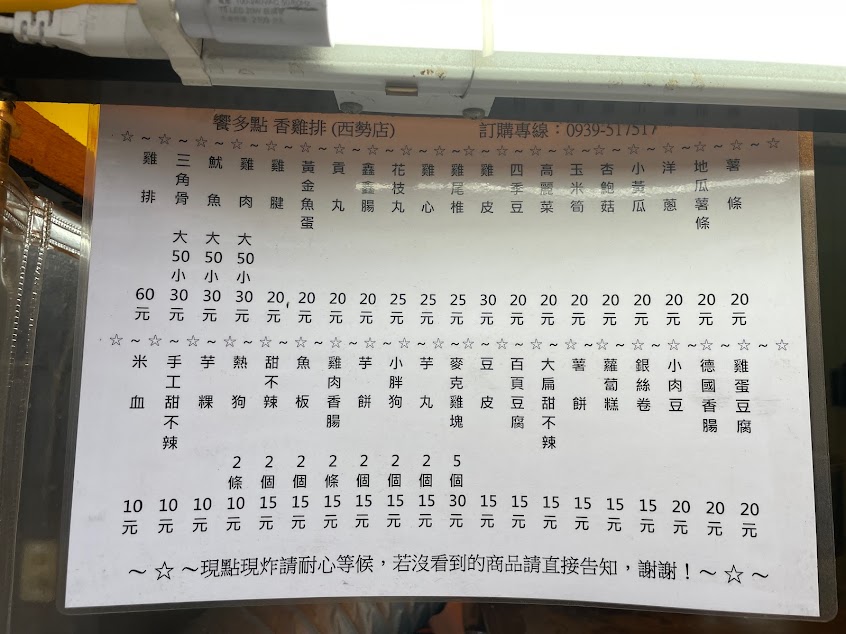 饗多點 香雞排 (西勢店) 訂購專線：0939-517517
☆～☆～☆～☆～☆～☆～☆～☆～☆～☆～☆～☆～☆～☆
雞排 60元
三角骨 大50小30元
魷魚 大50小30元
雞肉 大50小30元
雞腱 20元
黃金魚蛋 20元
貢丸 20元
鑫鑫腸 20元
花枝丸 25元
雞心 25元
雞尾椎 25元
雞皮 30元
四季豆 20元
高麗菜 20元
玉米筍 20元
杏鮑菇 20元
小黃瓜 20元
洋蔥 20元
地瓜薯條 20元
薯條 20元
☆～☆～☆～☆～☆～☆～☆～☆～☆～☆～☆～☆～☆～☆
米血 10元
手工甜不辣 10元
芋粿 10元
熱狗 2條 10元
甜不辣 2個 15元
魚板 2個 15元
雞肉香腸 2條 15元
芋餅 2個 15元
小胖狗 2個 15元
芋丸 2個 15元
麥克雞塊 5個 30元
豆皮 15元
百頁豆腐 15元
大扁甜不辣 15元
薯餅 15元
蘿蔔糕 15元
銀絲卷 15元
小肉豆 20元
德國香腸 20元
雞蛋豆腐 20元
～☆～現點現炸請耐心等候，若沒看到的商品請直接告知，謝謝！～☆～